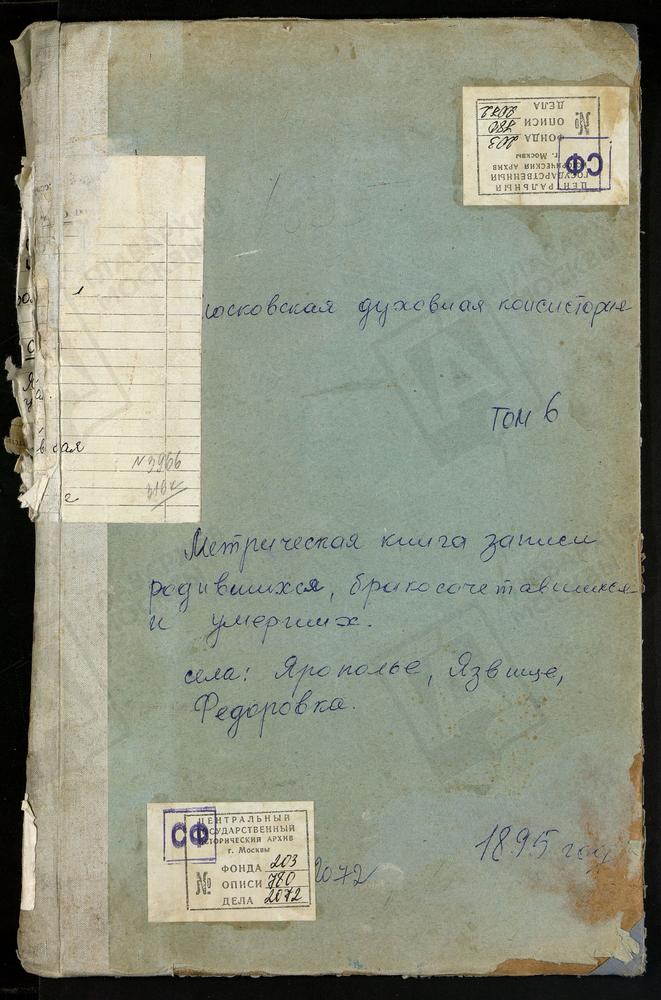 ЦЕНТРАЛЬНЫЙ
ГОСУДАРСТВЕННЫЙ
ИСТОРИЧЕСКИЙ АРХИВ
г. Москвы
СФ
№
ФОНДА 203
ОПИСИ 780
ДЕЛА 2072
Московская духовная консистория
Том 6
N 3966
Метрическая книга записи
родившихся, бракосочетавшихся
и умерших.
села: Ярополье, Язвище,
Федоровка.
1895 год
СФ
ЦЕНТРАЛЬНЫЙ
ГОСУДАРСТВЕННЫЙ
ИСТОРИЧЕСКИЙ АРХИВ
г. Москвы
№
ФОНДА 203
ОПИСИ 780
ДЕЛА 2072
2072
ГЛАВАРХИВ
МОСКВЫ